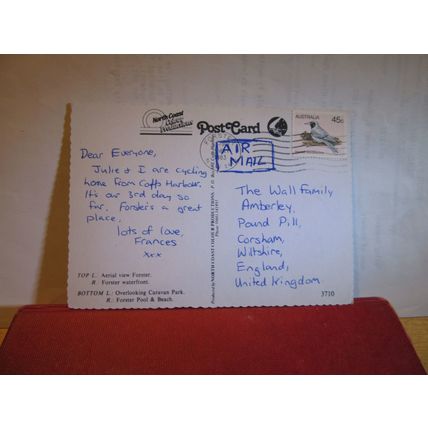 North Coast
Post Card
AUSTRALIA
45c
AIR
MAIL
Dear Everyone,
Julie & I are cycling
home from Coffs Harbour.
It's our 3rd day so
far. Forster's a great
place.
lots of love,
Frances
xxx
The Wall Family
Amberley
Pound Pill,
Corsham,
Wiltshire,
England,
United Kingdom
TOP L.: Aerial view Forster.
R: Forster waterfront.
BOTTOM L.: Overlooking Caravan Park.
R: Forster Pool & Beach.
Produced by NORTH COAST COLOUR PRODUCTIONS, P.O.
3710